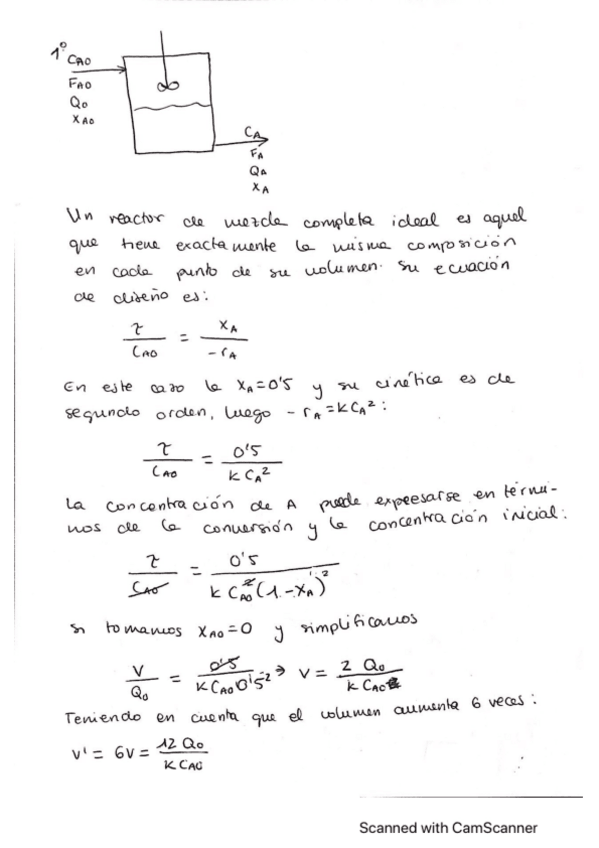 1º CA0
FA0
Q0
XA0
CA
FA
QA
XA
Un reactor de mezcla completa ideal es aquel
que tiene exactamente la misma composición
en cada punto de su volumen. Su ecuación
de diseño es:
τ / CA0 = XA / -rA
En este caso la XA=0'5 y su cinética es de
segundo orden, luego -rA=kCA²:
τ / CA0 = 0'5 / k CA²
La concentración de A puede expeesarse en térmi-
nos de la conversión y la concentración inicial:
τ / CA0 = 0'5 / k CA0²(1-XA)²
si tomamos XA0=0 y simplificamos
V / Q0 = 0'5 / k CA0 0'5² → V = 2 Q0 / k CA0
Teniendo en cuenta que el volumen aumenta 6 veces:
V' = 6V = 12 Q0 / k CA0
Scanned with CamScanner